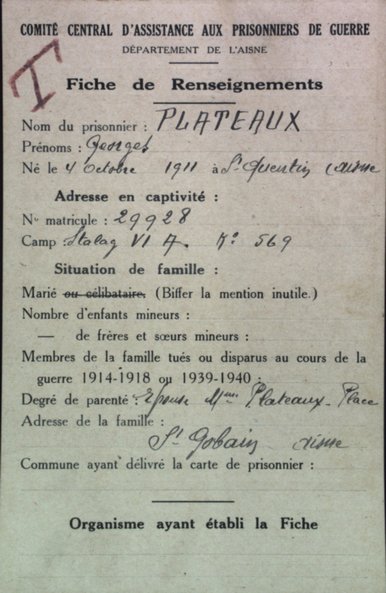 COMITÉ CENTRAL D'ASSISTANCE AUX PRISONNIERS DE GUERRE
DÉPARTEMENT DE L'AISNE
T
Fiche de Renseignements
Nom du prisonnier : PLATEAUX
Prénoms : Georges
Né le 4 Octobre 1911 à St Quentin (aisne
Adresse en captivité :
N° matricule : 29928
Camp Stalag VI A. K° 569
Situation de famille :
Marié ou célibataire. (Biffer la mention inutile.)
Nombre d'enfants mineurs :
— de frères et sœurs mineurs :
Membres de la famille tués ou disparus au cours de la
guerre 1914-1918 ou 1939-1940 :
Degré de parenté : Epouse Mme Plateaux - Place
Adresse de la famille :
St Gobain aisne
Commune ayant délivré la carte de prisonnier :
Organisme ayant établi la Fiche